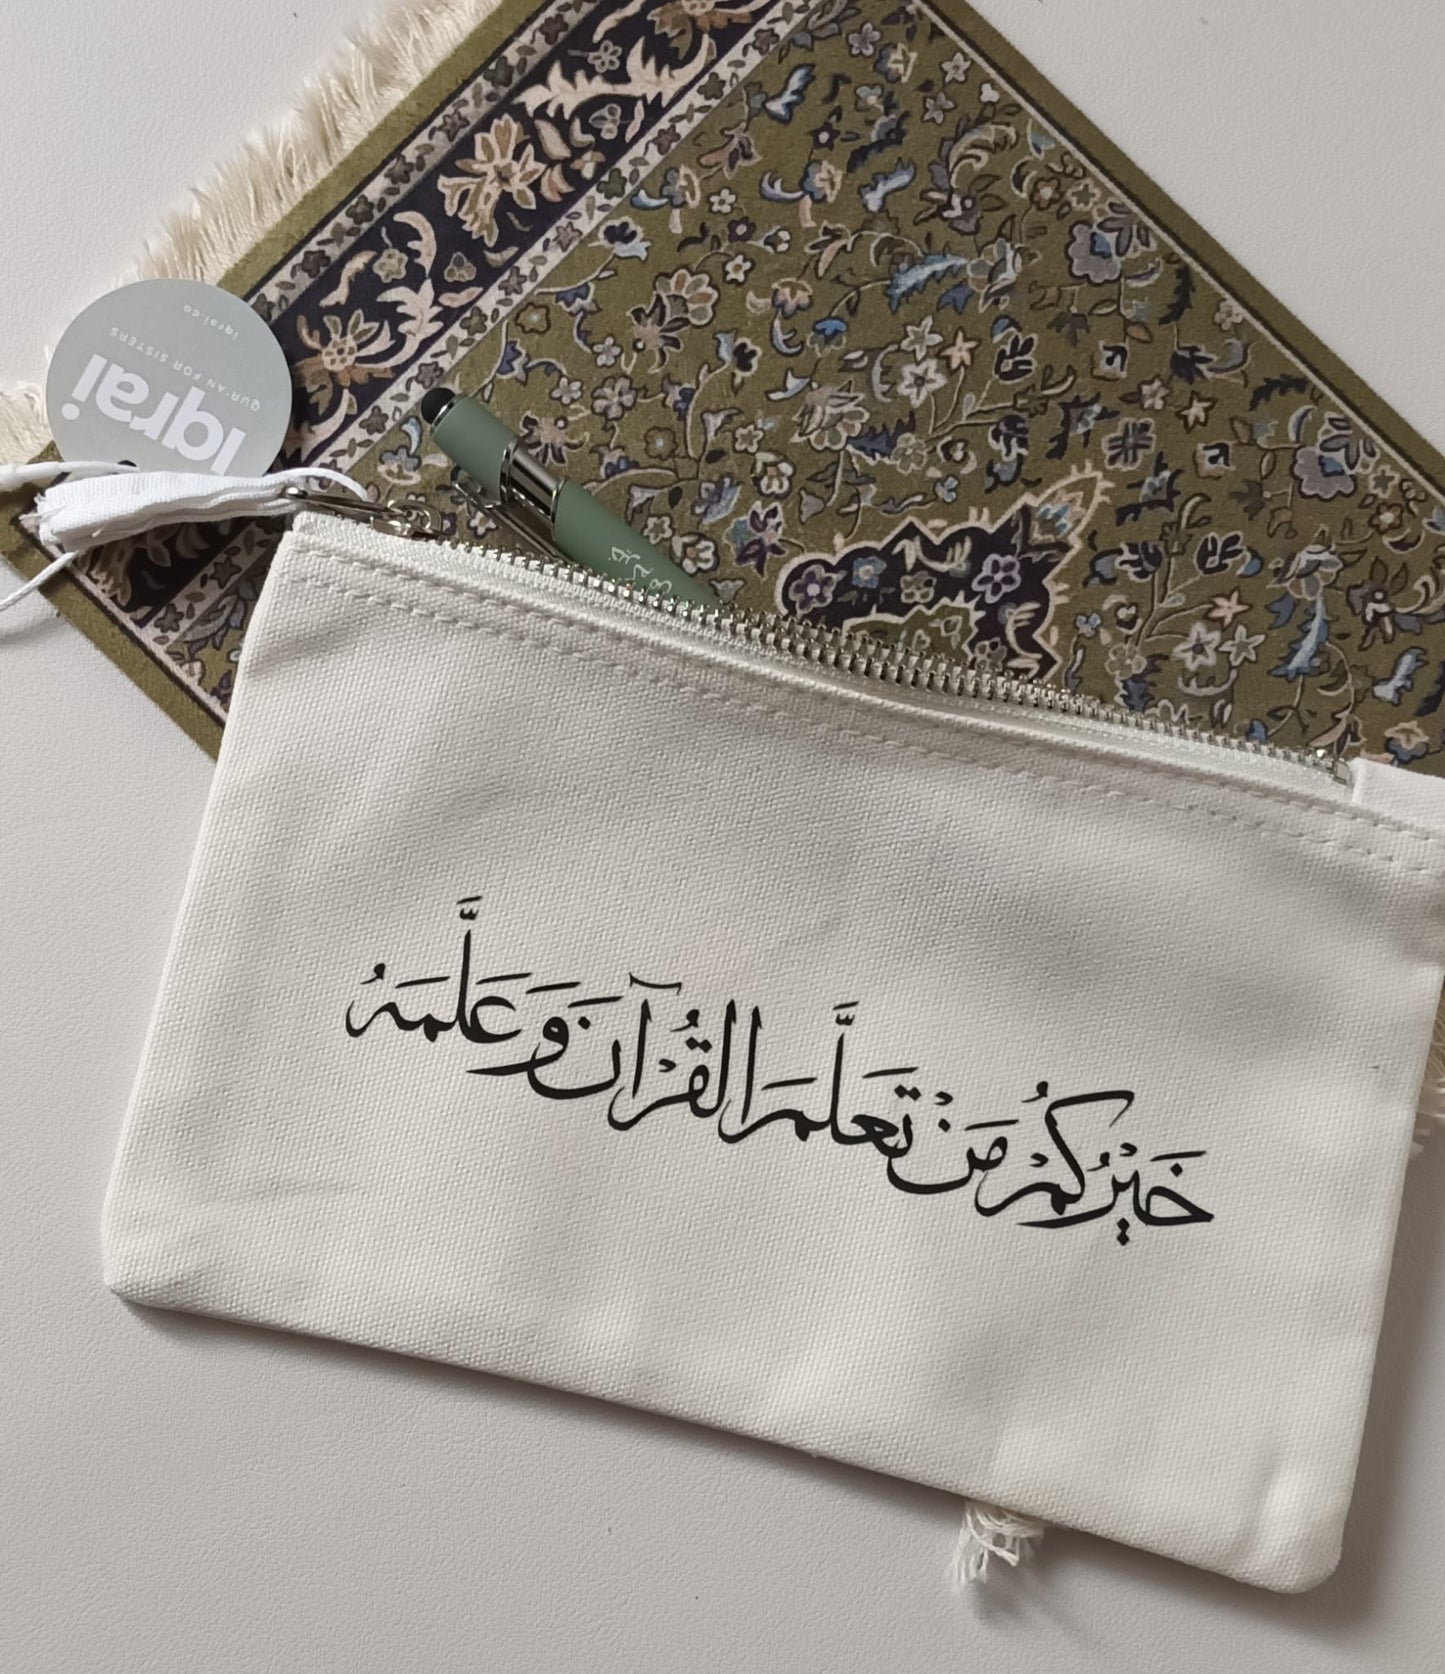 iqrai.co
QUR'AN FOR SISTERS
Iqrai
خَيْرُكُمْ مَنْ تَعَلَّمَ القُرْآنَ وَعَلَّمَهُ